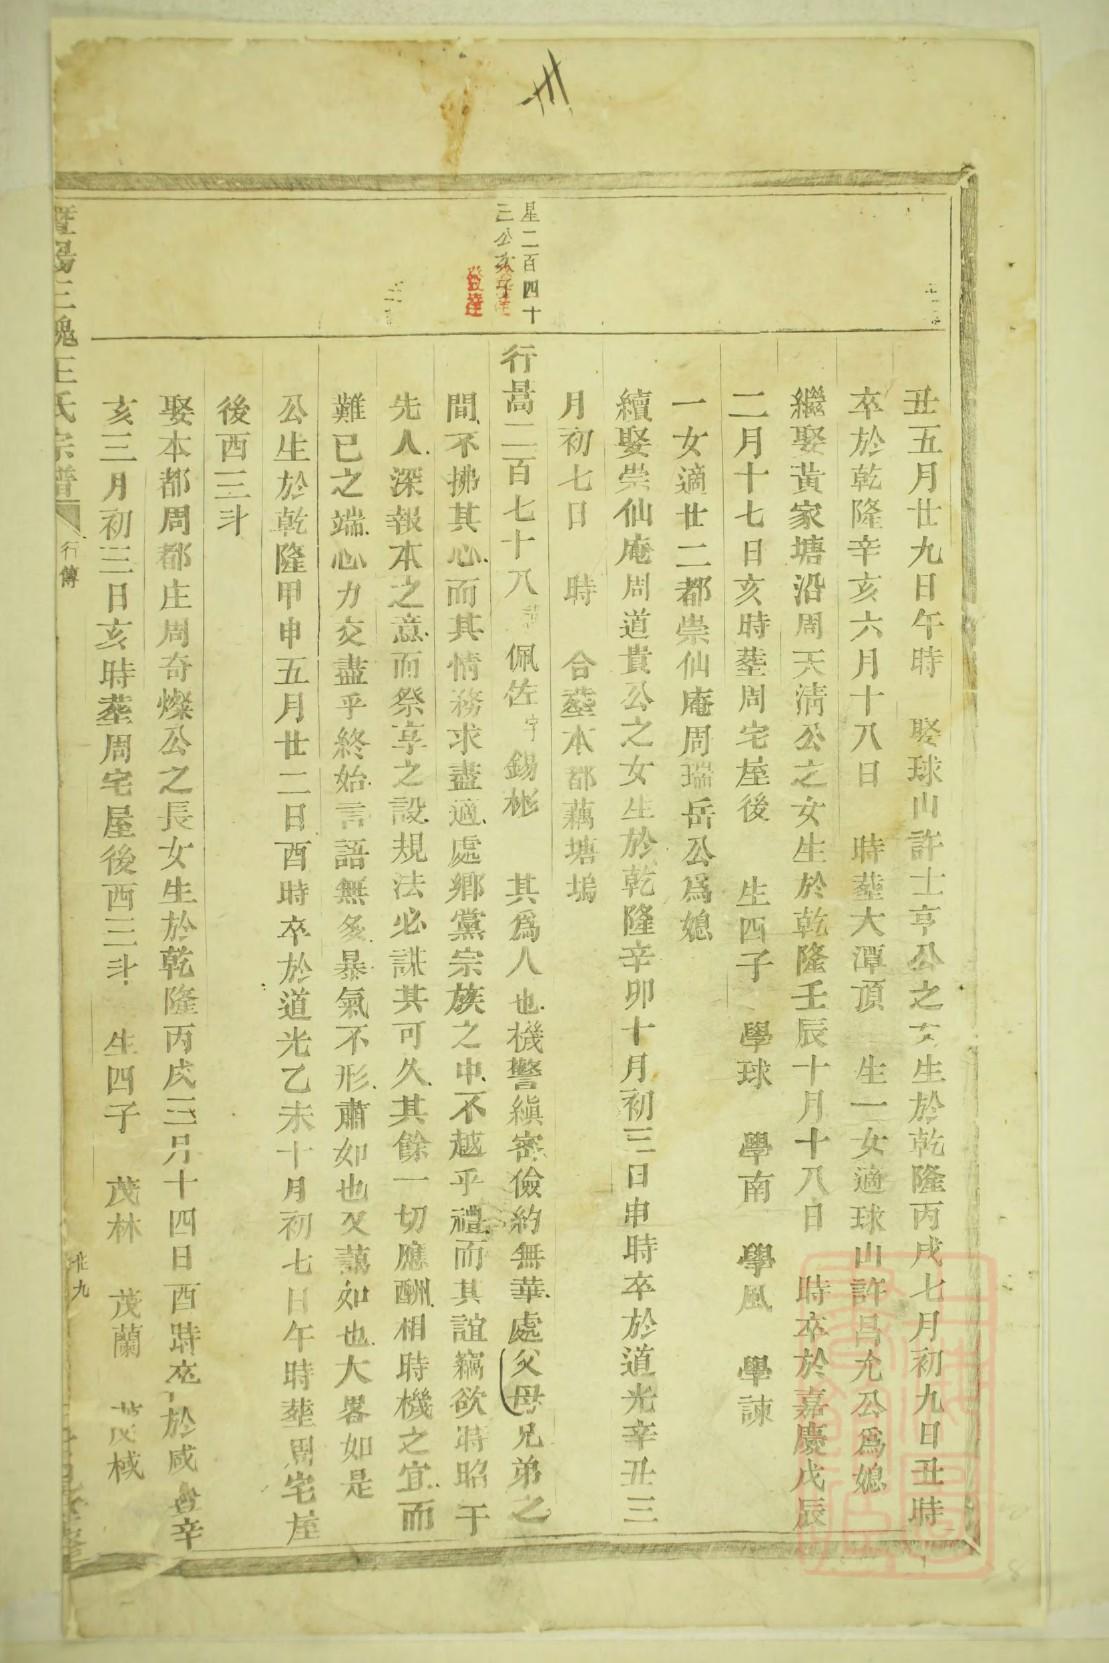 丑五月廿九日午時 娶球山許士亨公之女生於乾隆丙戌七月初九日丑時
卒於乾隆辛亥六月十八日 時塟大潭頂 生一女適球山許昌允公爲媳
繼娶黃家塘沿周天淸公之女生於乾隆壬辰十月十八日 時卒於嘉慶戊辰
二月十七日亥時塟周宅屋後 生四子 學球 學南 學風 學諫
一女適廿二都崇仙庵周瑞岳公爲媳
續娶崇仙庵周道貴公之女生於乾隆辛卯十月初三日申時卒於道光辛丑三
月初七日 時 合塟本都藕塘塢
星二百四十
三公亥子
發達
行暠二百七十八 諱佩佐字錫彬 其爲人也機警縝密儉約無華處父母兄弟之
間不拂其心而其情務求盡適處鄉黨宗族之中不越乎禮而其誼竊欲時昭于
先人深報本之意而祭享之設規法必謀其可久其餘一切應酬相時機之宜而
難已之端心力交盡乎終始言語無多暴氣不形肅如也又藹如也大畧如是
公生於乾隆甲申五月廿二日酉時卒於道光乙未十月初七日午時塟周宅屋
後酉三斗
娶本都周都庄周奇燦公之長女生於乾隆丙戌三月十四日酉時卒於咸豐辛
亥三月初三日亥時塟周宅屋後酉三斗 生四子 茂林 茂蘭 茂棫
暨陽三槐王氏宗譜 行傳
卅